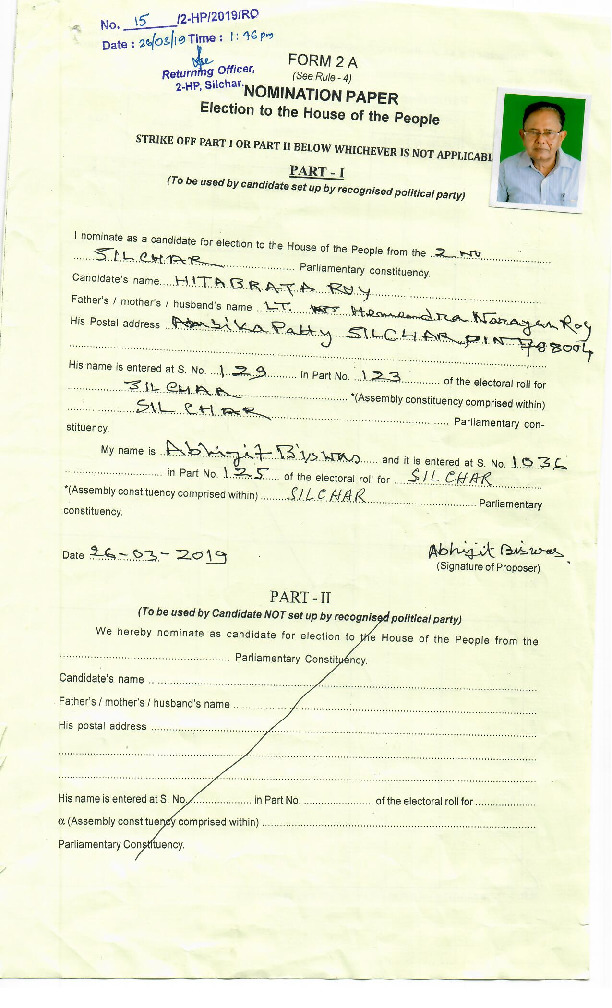 No. 15 /2-HP/2019/RO
Date : 26/03/19 Time : 1:46 pm
Returning Officer,
2-HP, Silchar.
FORM 2 A
(See Rule - 4)
NOMINATION PAPER
Election to the House of the People
STRIKE OFF PART I OR PART II BELOW WHICHEVER IS NOT APPLICABL
PART - I
(To be used by candidate set up by recognised political party)
I nominate as a candidate for election to the House of the People from the 2 No
SILCHAR Parliamentary constituency.
Candidate's name HITABRATA ROY
Father's / mother's / husband's name LT. Hemendra Narayan Roy
His Postal address Ambika Patty SILCHAR PIN 788004
His name is entered at S. No. 129 in Part No. 123 of the electoral roll for
SILCHAR *(Assembly constituency comprised within)
SILCHAR Parliamentary con-
stituency.
My name is Abhijit Biswas and it is entered at S. No. 1036
in Part No. 125 of the electoral rol for SILCHAR
*(Assembly const tuency comprised within) SILCHAR Parliamentary
constituency.
Date 26-03-2019
Abhijit Biswas.
(Signature of Proposer)
PART - II
(To be used by Candidate NOT set up by recognised political party)
We hereby nominate as candidate for election to the House of the People from the
Parliamentary Constituency.
Candidate's name
Father's / mother's / husband's name
His postal address
His name is entered at S No. in Part No. of the electoral roll for
α (Assembly const tuency comprised within)
Parliamentary Constituency.